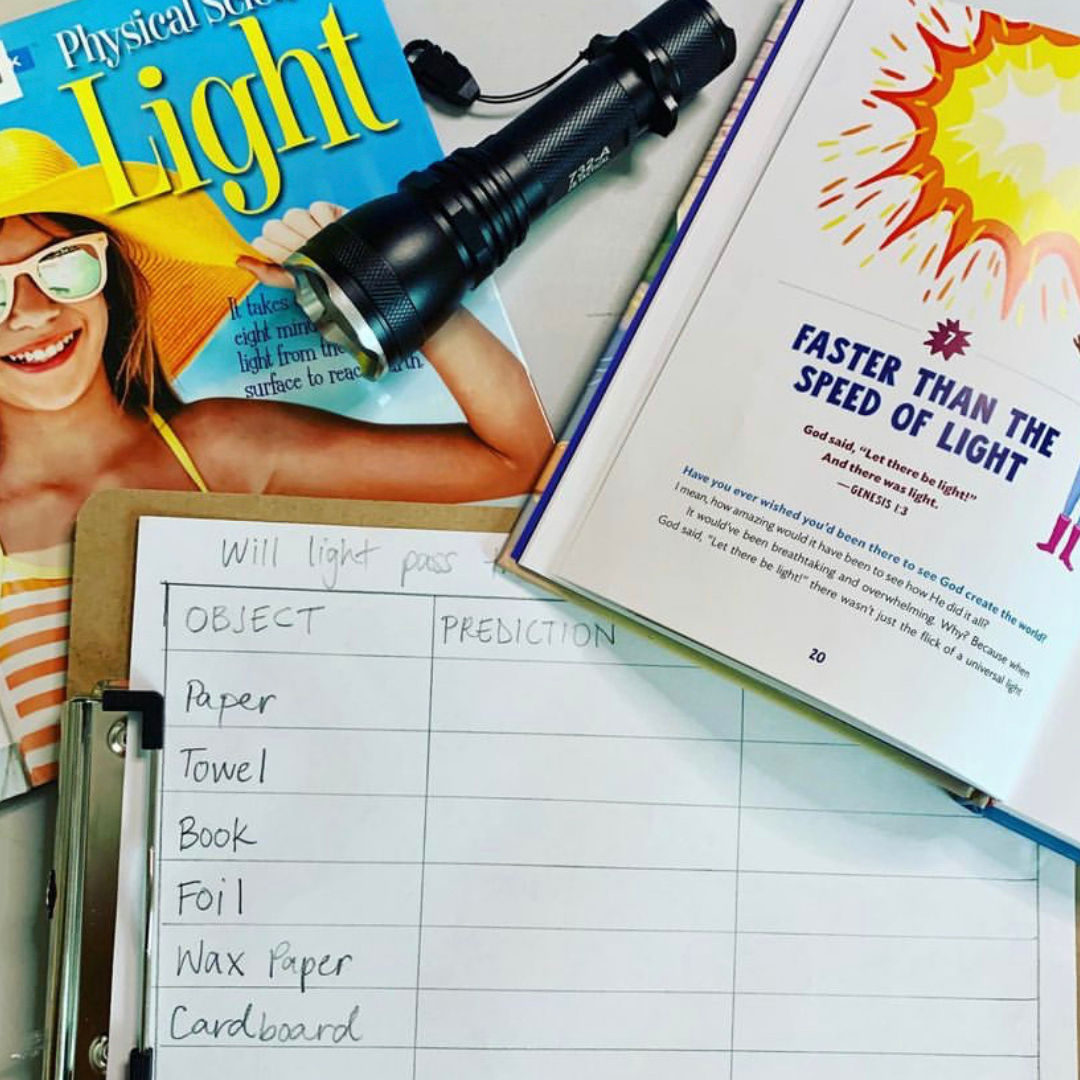 Physical
Light
It takes
eight
light from the
surface to
732-A
7
FASTER THAN THE
SPEED OF LIGHT
God said, “Let there be light!”
And there was light.
—GENESIS 1:3
Have you ever wished you’d been there to see God create the world?
I mean, how amazing would it have been to see how He did it all?
It would’ve been breathtaking and overwhelming. Why? Because when
God said, “Let there be light!” there wasn’t just the flick of a universal light
20
Will light pass
OBJECT PREDICTION
Paper
Towel
Book
Foil
Wax Paper
Cardboard